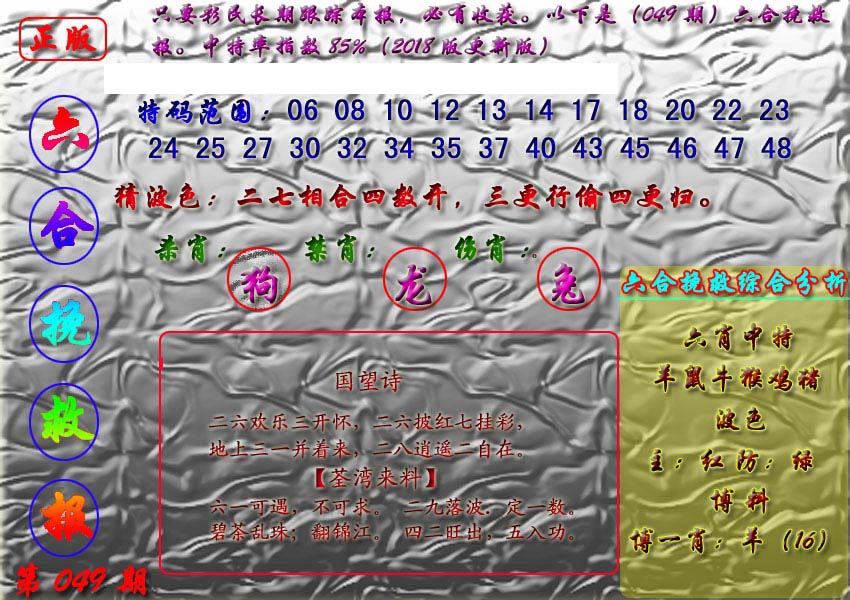 正版
只要彩民长期跟踪本报，必有收获。以下是（049期）六合挽救
报。中特率指数85%（2018版更新版）
六
合
挽
救
报
第049期
特码范围：06 08 10 12 13 14 17 18 20 22 23
24 25 27 30 32 34 35 37 40 43 45 46 47 48
猜波色：二七相合四数开，三更行偷四更归。
杀肖：狗 禁肖：龙 伤肖：兔
国望诗
二六欢乐三开怀，二六披红七挂彩，
地上三一并着来，二八逍遥二自在。
【荃湾来料】
六一可遇，不可求。 二九落波，定一数。
碧茶乱珠；翻锦江。 四二旺出，五入功。
六合挽救综合分析
六肖中特
羊鼠牛猴鸡猪
波色
主：红防：绿
博料
博一肖：羊（16）